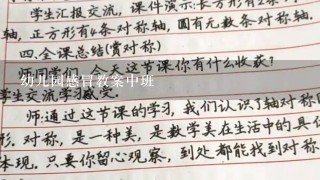 学生汇报交流，课件演示：长方形有2条
轴，正方形有4条对称轴，圆有无数条对称轴.
四.全课总结(赏对称)
今天这节课你有什么收获？
幼儿园感冒教案中班
学生交流学习感受.
师：通过这节课的学习，我们认识了轴对称图
形.对称，是一种美，是数学美在生活中的具
体现.只要你留心观察，到处都能找到对称